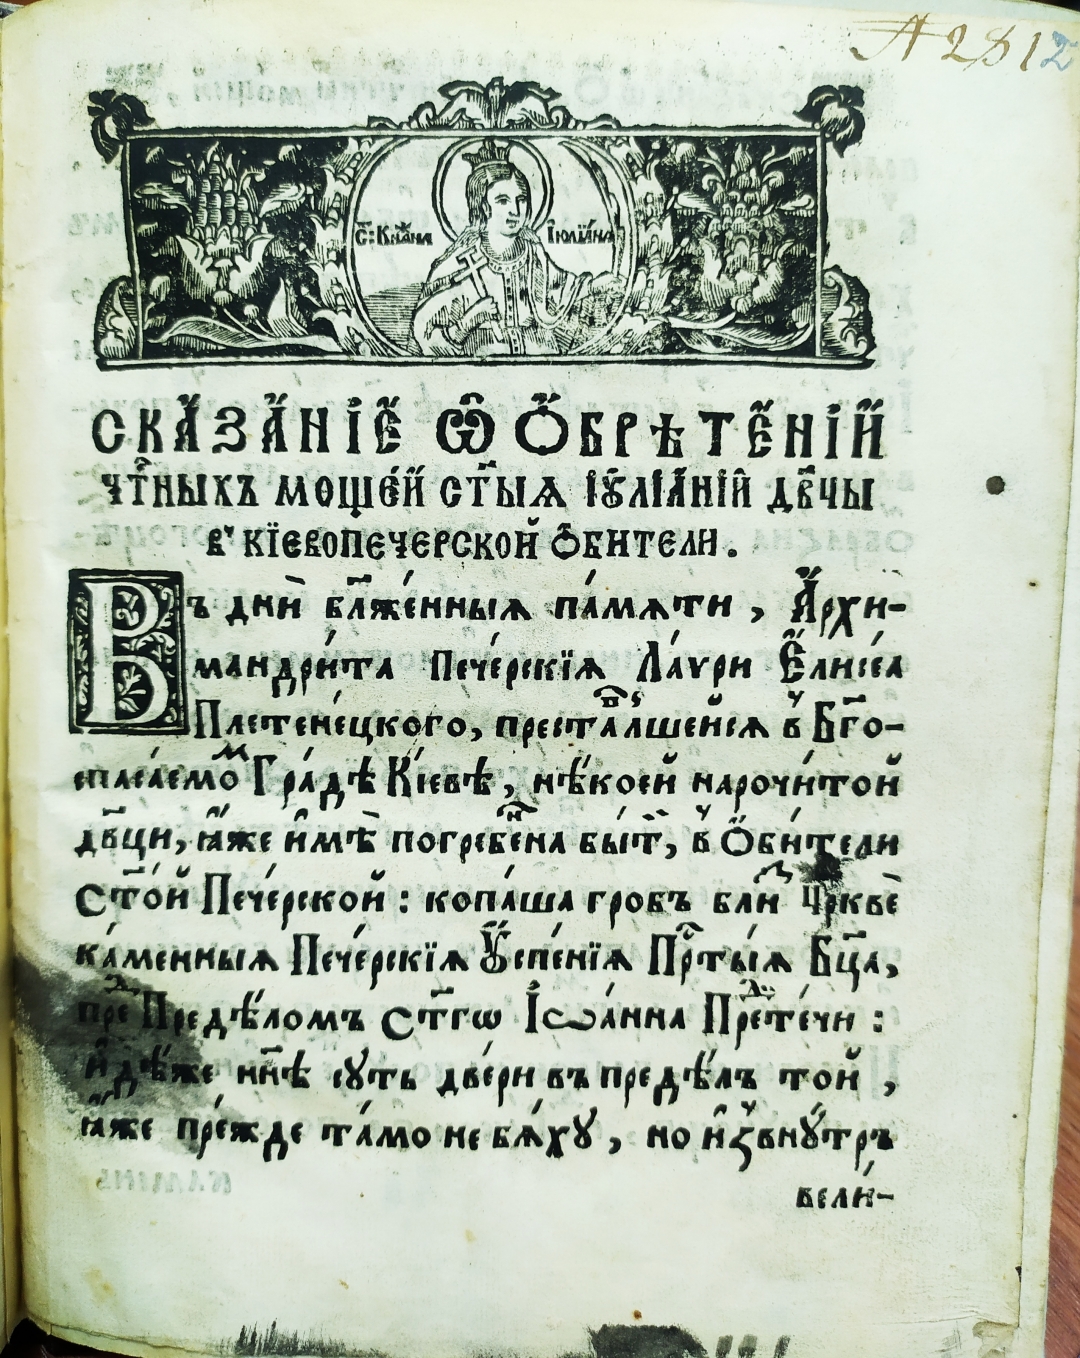 А 2812
С: Кнѧжна Іюліанїа
СКАЗАНІЕ Ѡ ОБРѢТЕНІЙ
чⷭ҇тныхъ мощей ст҃ыѧ Іꙋліаніи дв҃цы
в̾ кїевопечерской Обители.
Въ дни блж҃енныѧ памѧти, Архи-
мандрита Печерскїѧ Лаѵри Елисеа
Плетенецкого, преставлшейсѧ в̾ Бг҃о-
спасаемомъ Градѣ Кїевѣ, нѣкоей нарочитой
дв҃ци, ꙗже имѣ погребена быти, в̾ Обители
ст҃ой Печерской: копаша гробъ близ Цр҃кве
каменныѧ Печерскїѧ Ѹспенїѧ Прⷭ҇тыѧ Бц҃а,
пред Предѣломъ ст҃гѡ Іѡанна Предтечи:
идѣже нн҃ѣ суть двери въ предѣлъ той,
ꙗже прежде тамо не бѧху, но извнутръ
вели-